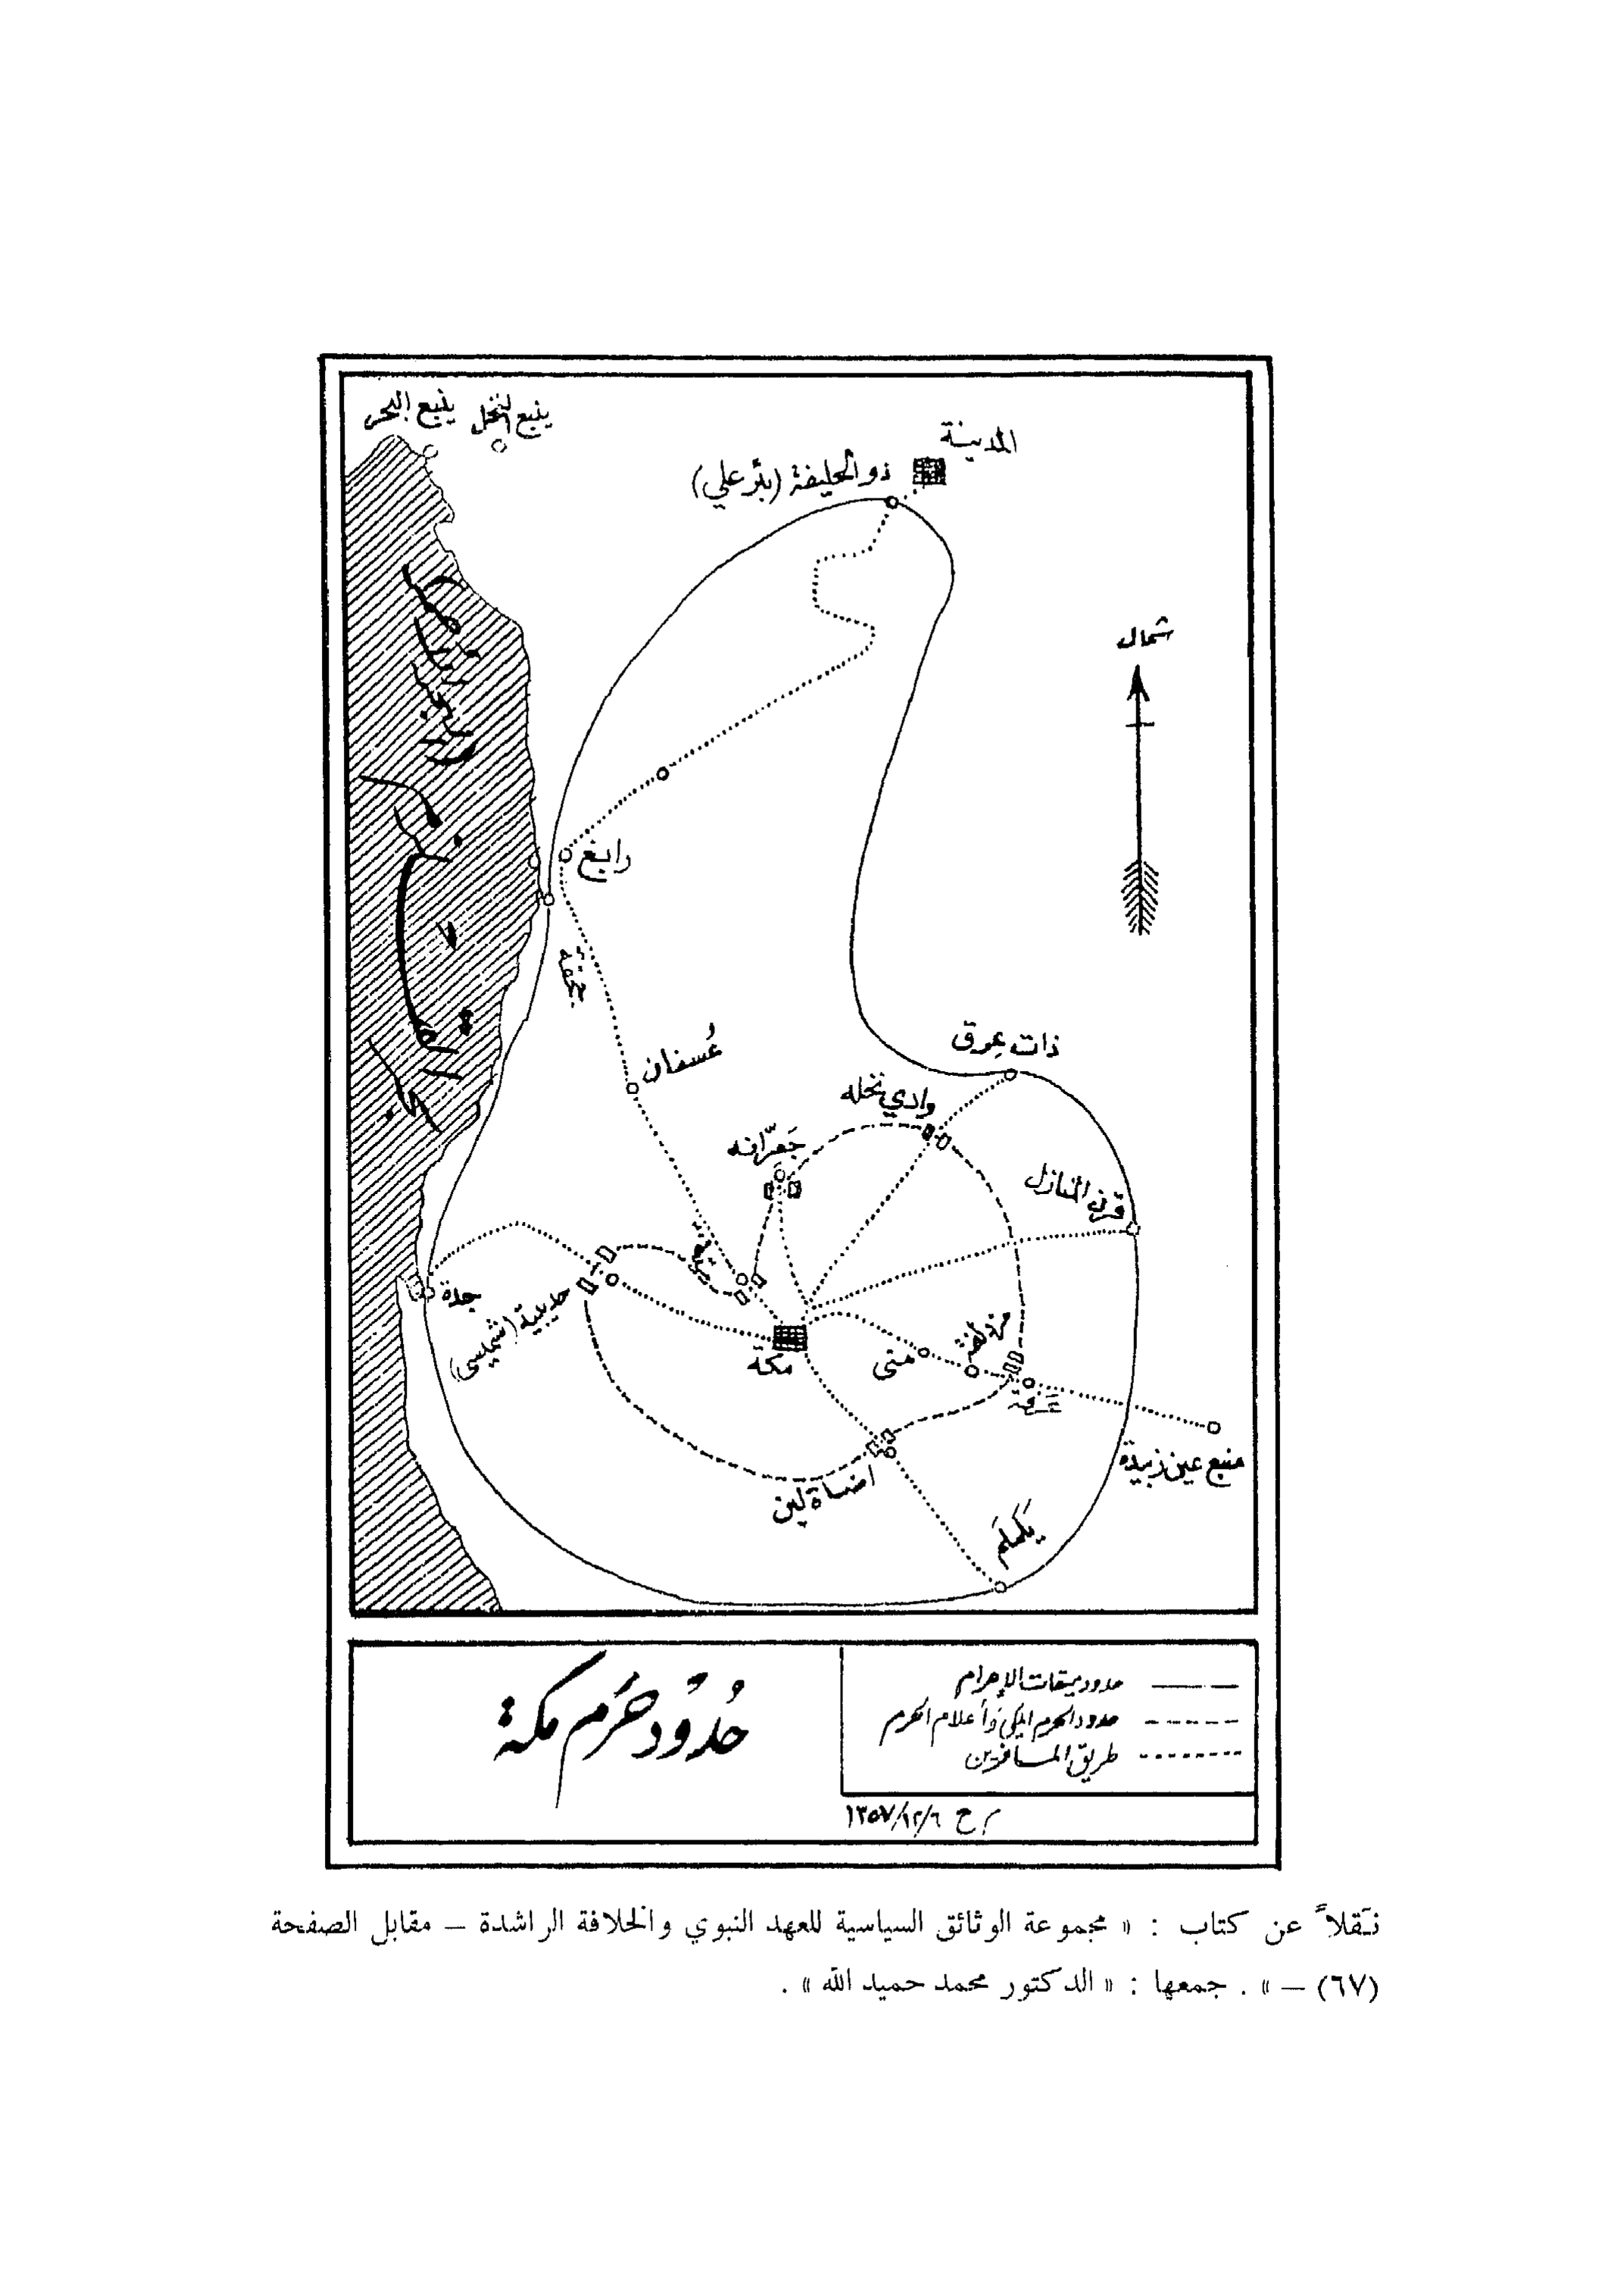 ينبع البحر
ينبع النخل
المدينة
ذو الحليفة (بئر علي)
شمال
رابغ
جحفة
عُسفان
ذات عِرق
وادي نخله
جَعرّانه
قرن المنازل
جدة
حديبية (شميسي)
مكة
منى
مزدلفة
عرفة
منبع عين زبيدة
اضاة لبن
يَلَملَم
حُدُوْد حَرَم مكة
حدود ميقات للإحرام
حدود الحرم المكي وأعلام الحرم
طريق المسافرين
م ح ١٣٥٧/١٢/٦
نَقلاً عن كتاب : « مجموعة الوثائق السياسية للعهد النبوي والخلافة الراشدة – مقابل الصفحة
(٦٧) – » . جمعها : « الدكتور محمد حميد الله » .